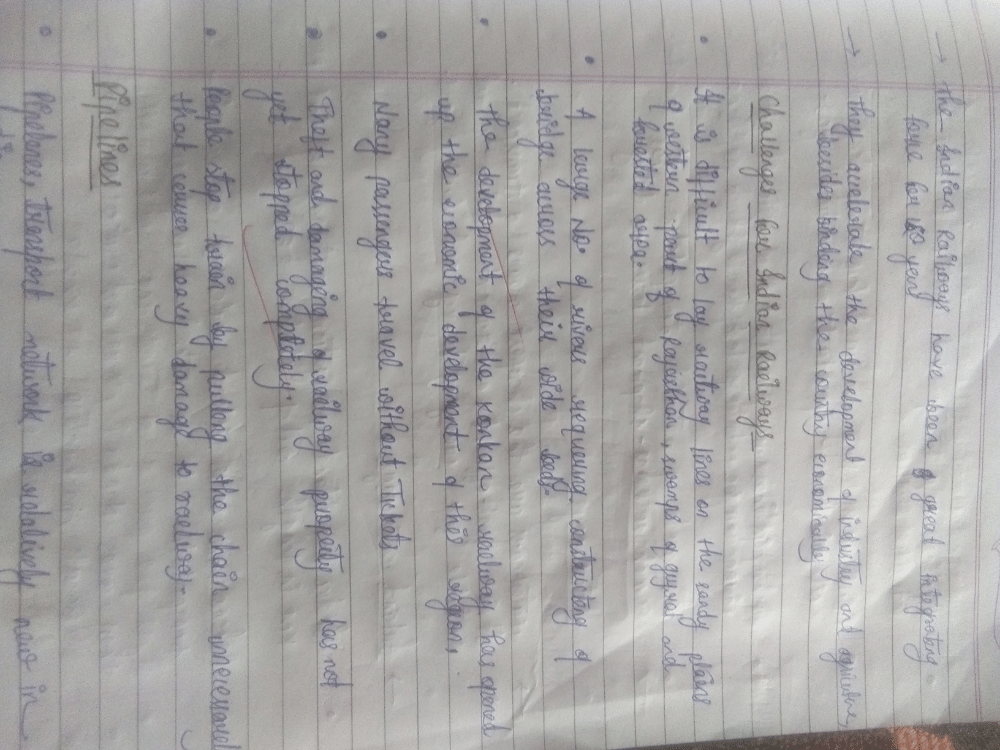 → the Indian Railways have been of great integrating
force for 150 year
→ they accelerate the development of industry and agriculture,
besides binding the country economically
Challenges for Indian Railways
• It is difficult to lay railway lines on the sandy plains
of western part of Rajasthan, swamps of gujrat and
forested area.
• A large No. of rivers requering constructing of
bridge across their wide beds.
• the development of the konkan railway has opened
up the economic development of this region,
• Many passengers travel without Tickets
• Theft and damaging of railway property has not
yet stopped completely.
• People stop train by pulling the chain unnecessarl
that causes heavy damage to railway.
Pipelines
• Pipelines, transport network is relatively new in